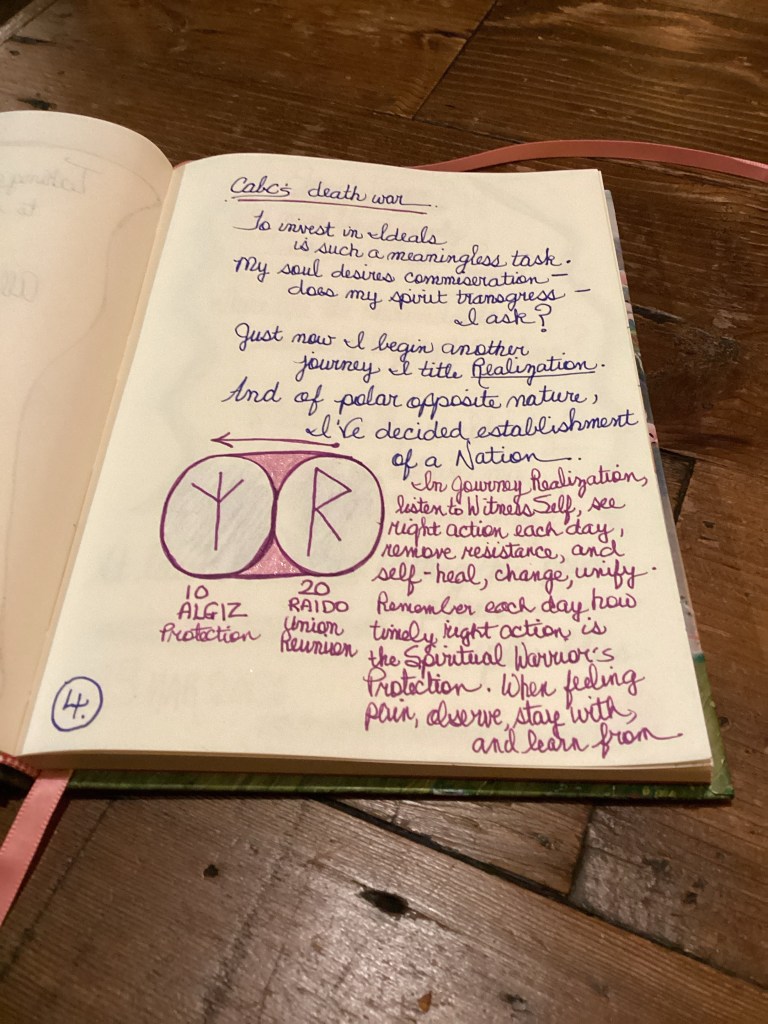 Cabc's death war
To invest in Ideals
is such a meaningless task.
My soul desires commiseration —
does my spirit transgress —
I ask?
Just now I begin another
journey I title Realization.
And of polar opposite nature,
I've decided establishment
of a Nation.
In Journey Realization,
listen to Witness Self, see
right action each day,
remove resistance, and
self-heal, change, unify.
Remember each day how
timely, right action is
the Spiritual Warrior's
Protection. When feeling
pain, observe, stay with,
and learn from.
10
ALGIZ
Protection
20
RAIDO
Union
Reunion
4.